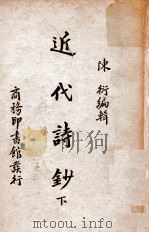 陳衍編輯
近代詩鈔
下
商務印書館發行
mtoou.info
mtoou.info